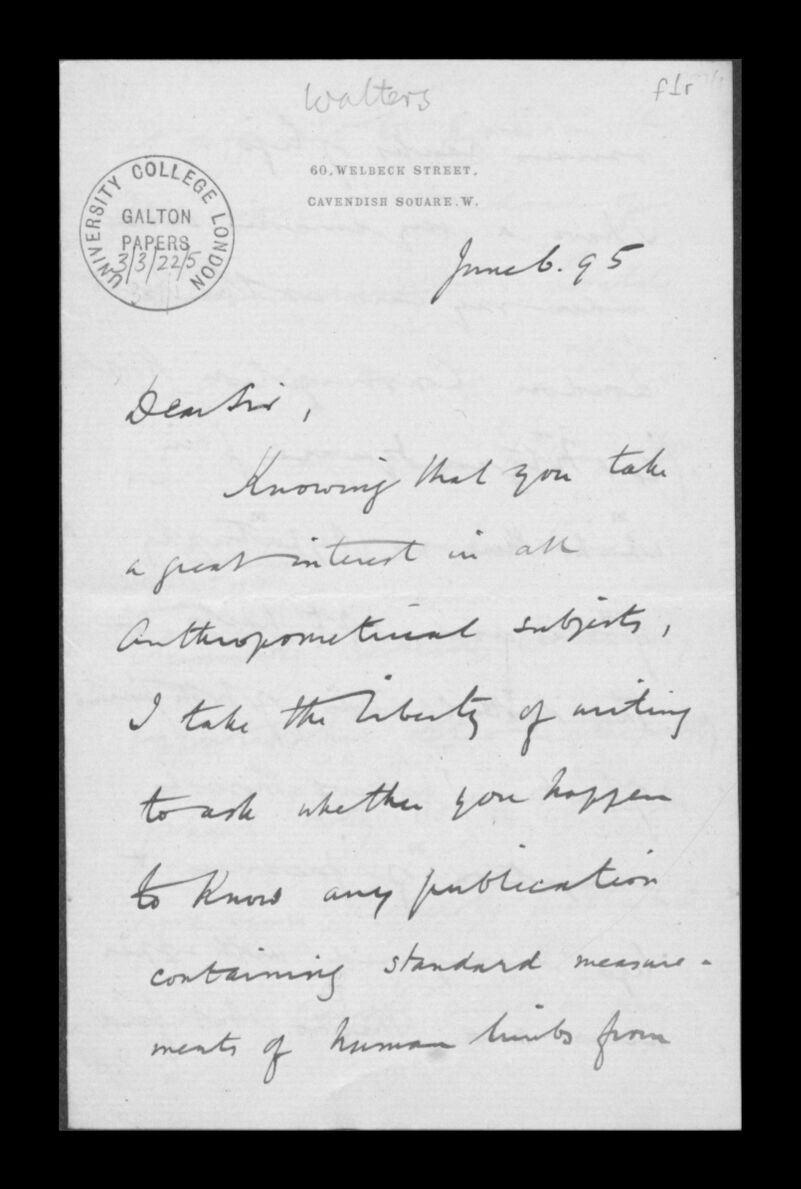 Walters
f1r
60, WELBECK STREET,
CAVENDISH SQUARE. W.
UNIVERSITY COLLEGE LONDON
GALTON
PAPERS
3/3/22/5
June 6. 95
Dear Sir,
Knowing that you take
a great interest in all
Anthropometrical subjects,
I take the liberty of writing
to ask whether you happen
to know any publication
containing standard measure-
ments of human limbs from